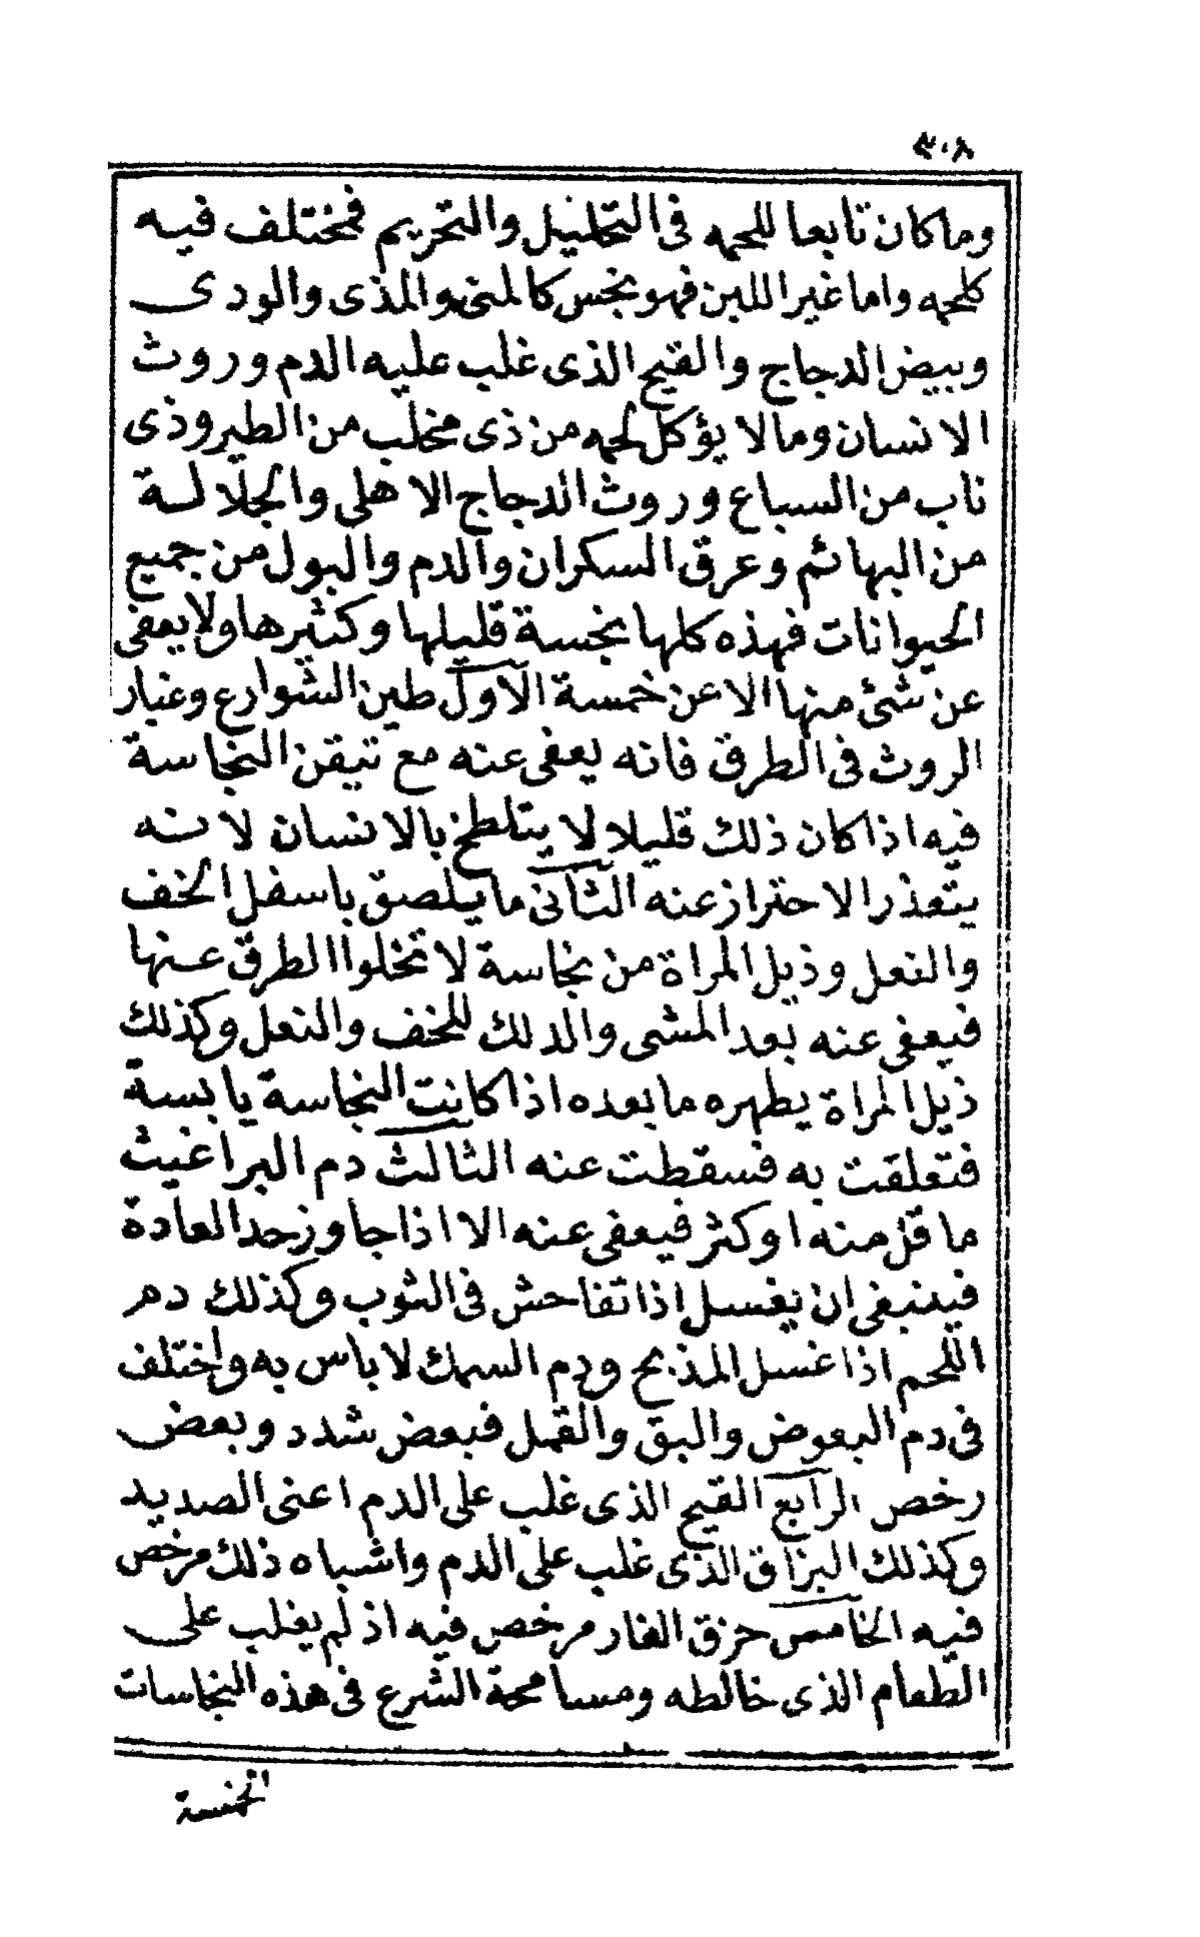 ٣٠٨
وما كان تابعا للحمه فى التحليل والتحريم فمختلف فيه
كلحمه واما غير اللبن فهو نجس كالمنى والمذى والودى
وبيض الدجاج والقيح الذى غلب عليه الدم وروث
الانسان ومالا يؤكل لحمه من ذى مخلب من الطير وذى
ناب من السباع وروث الدجاج الاهلى والجلالة
من البهائم وعرق السكران والدم والبول من جميع
الحيوانات فهذه كلها نجسة قليلها وكثيرها ولا يعفى
عن شئ منها الا عن خمسة الاول طين الشوارع وغبار
الروث فى الطرق فانه يعفى عنه مع تيقن النجاسة
فيه اذا كان ذلك قليلا لا يتلطخ بالانسان لانه
يتعذر الاحتراز عنه الثانى ما يلصق باسفل الخف
والنعل وذيل المراة من نجاسة لا تخلوا الطرق عنها
فيعفى عنه بعد المشى والدلك للخف والنعل وكذلك
ذيل المراة يطهره ما بعده اذا كانت النجاسة يابسة
فتعلقت به فسقطت عنه الثالث دم البراغيث
ما قل منه او كثر فيعفى عنه الا اذا جاوز حد العادة
فينبغى ان يغسل اذا تفاحش فى الثوب وكذلك دم
اللحم اذا غسل المذبح ودم السمك لا باس به واختلف
فى دم البعوض والبق والقمل فبعض شدد وبعض
رخص الرابع القيح الذى غلب على الدم اعنى الصديد
وكذلك البزاق الذى غلب على الدم واشباه ذلك مرخص
فيه الخامس حزق الفار مرخص فيه اذ لم يغلب على
الطعام الذى خالطه ومسامحة الشرع فى هذه النجاسات
الخمسة